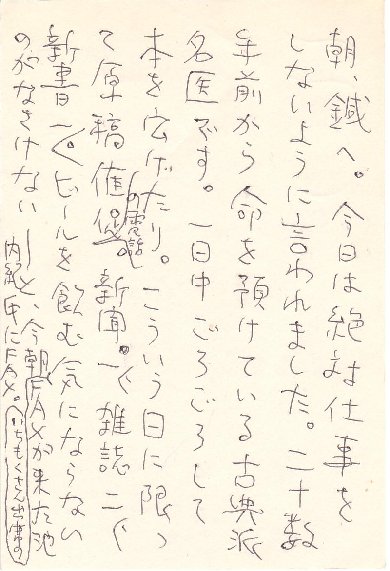 朝、鍼へ。今日は絶対仕事を
しないように言われました。二十数
年前から命を預けている古典派
名医です。一日中ごろごろして
本を広げたり。こういう日に限っ
て原稿催促の電話。新聞一つ、雑誌二つ
新書一つ。ビールを飲む気にならない
のがなさけない――と、今朝FAXが来た池
内紀氏にFAX。